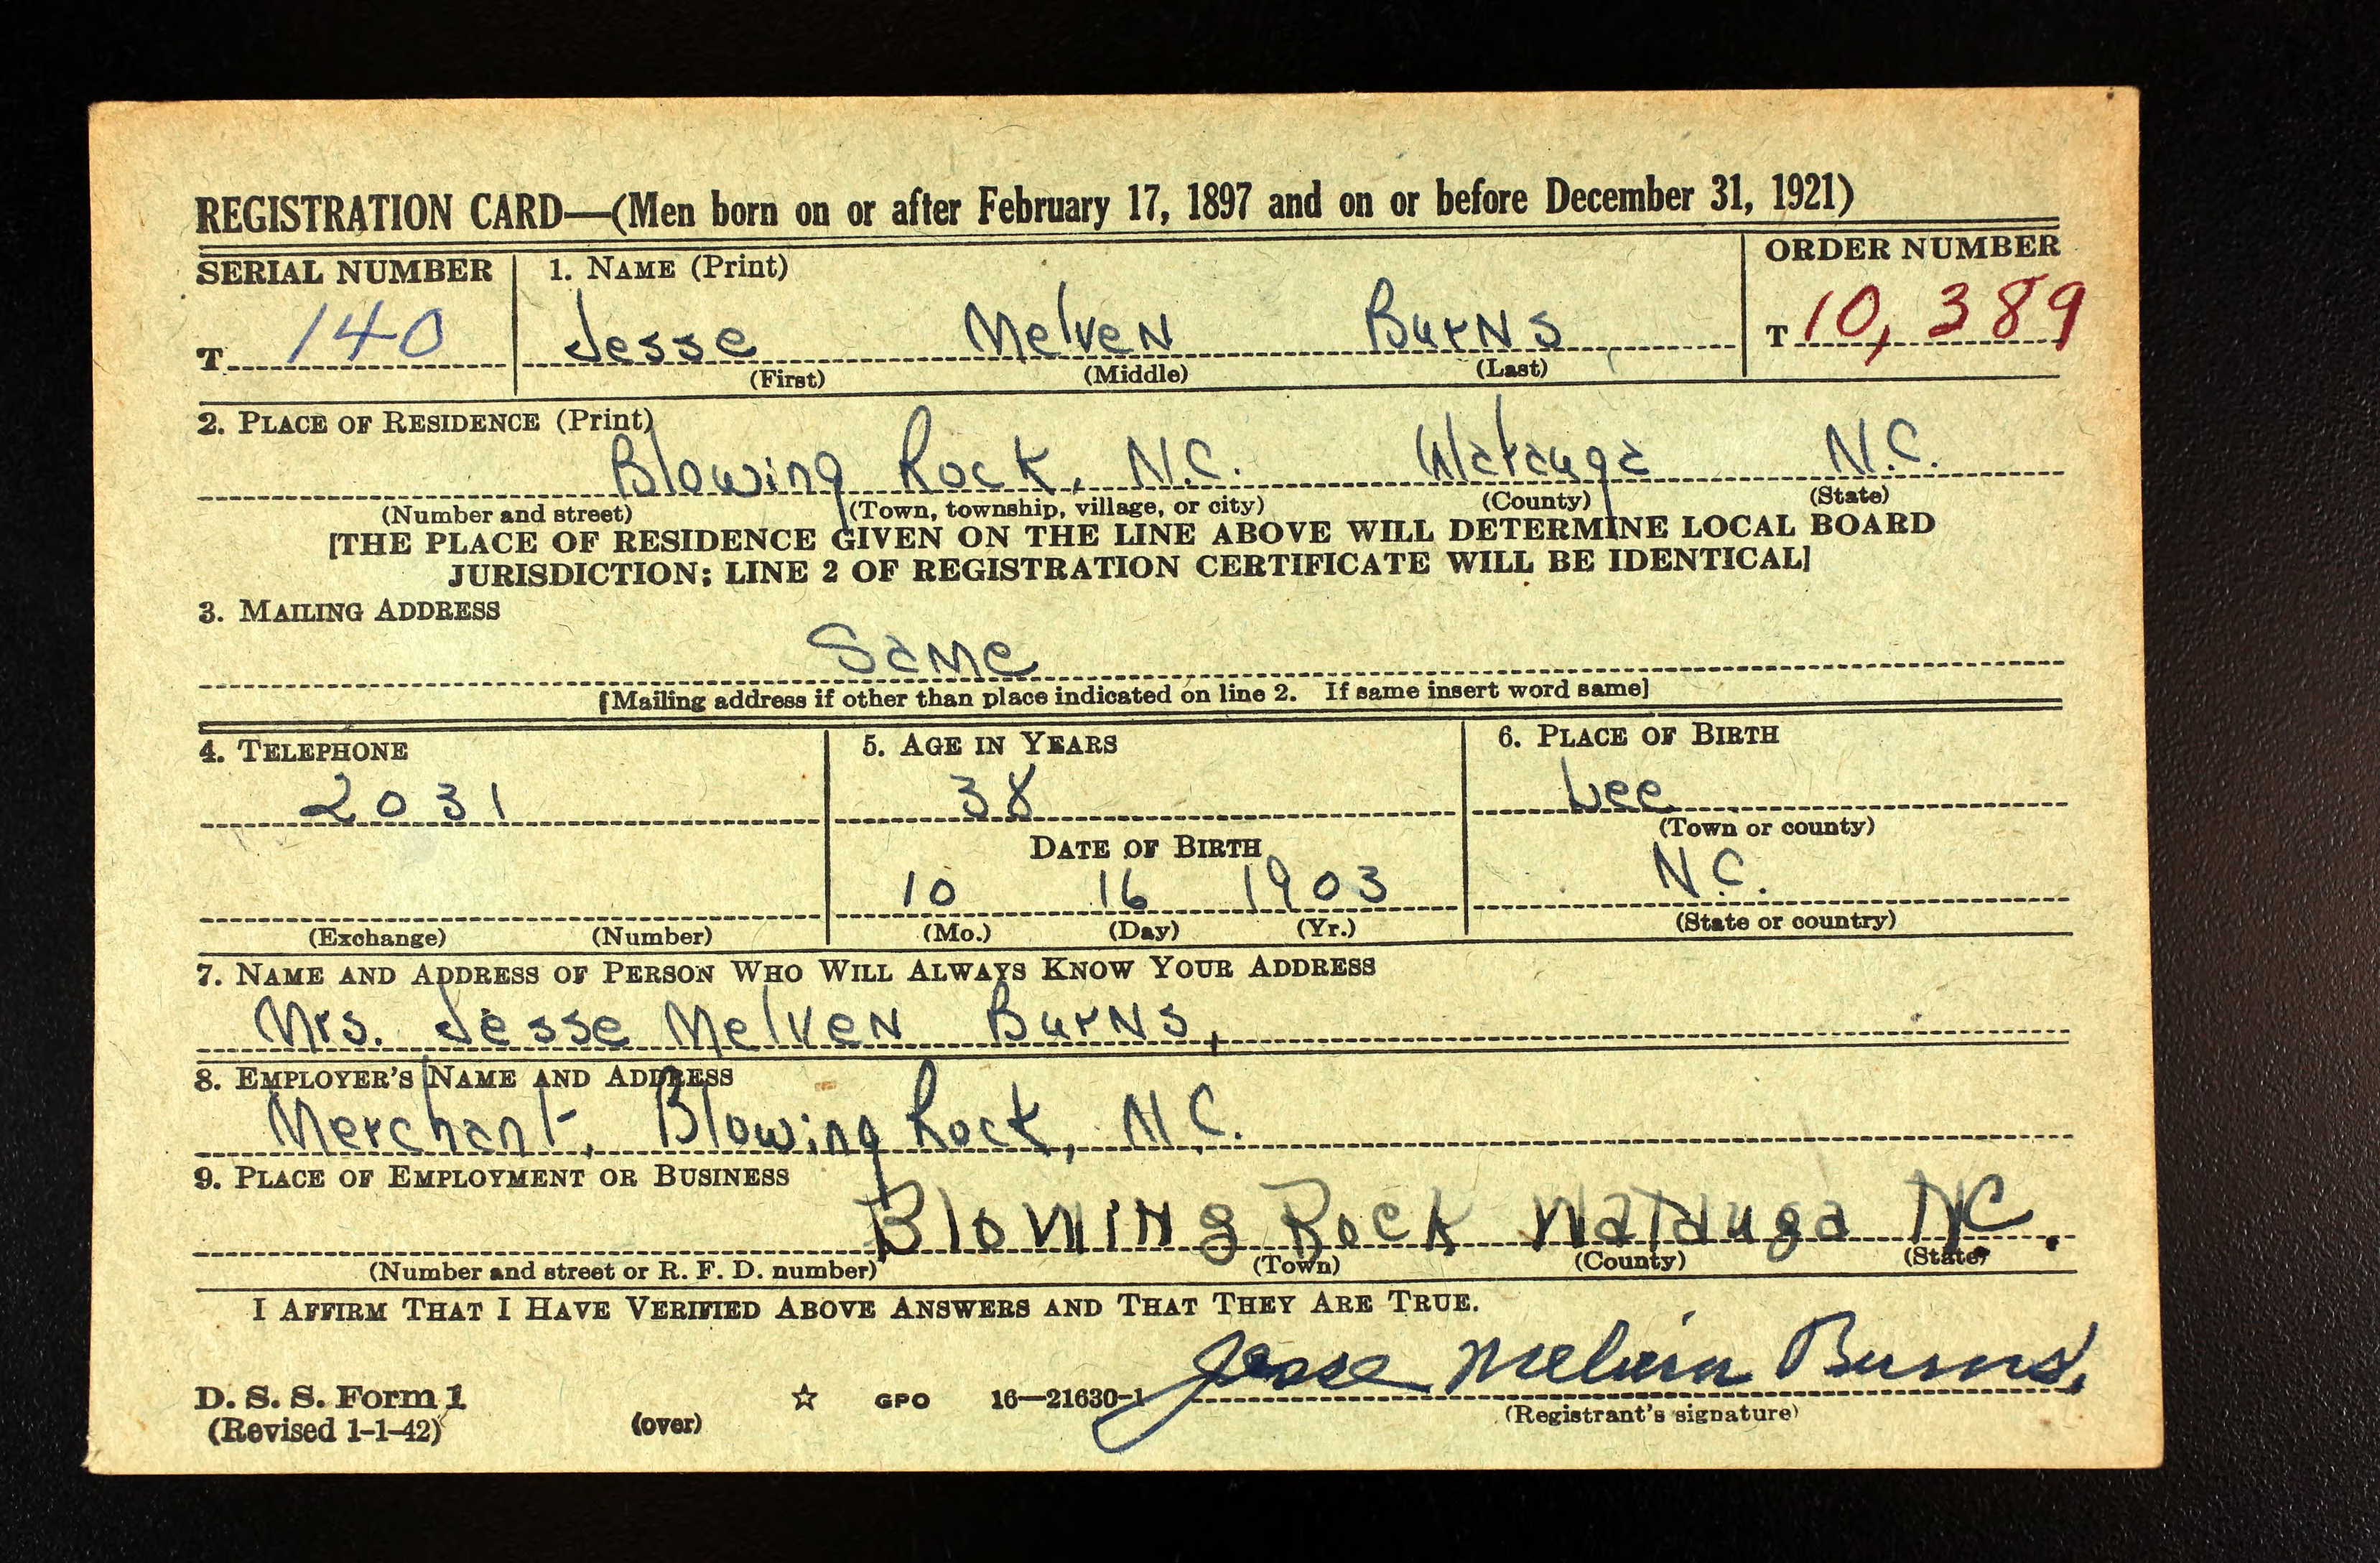 REGISTRATION CARD—(Men born on or after February 17, 1897 and on or before December 31, 1921)
SERIAL NUMBER 1. NAME (Print) ORDER NUMBER
T 140 Jesse Melven Burns T 10,389
(First) (Middle) (Last)
2. PLACE OF RESIDENCE (Print)
Blowing Rock, N.C. Watauga N.C.
(Number and street) (Town, township, village, or city) (County) (State)
[THE PLACE OF RESIDENCE GIVEN ON THE LINE ABOVE WILL DETERMINE LOCAL BOARD
JURISDICTION; LINE 2 OF REGISTRATION CERTIFICATE WILL BE IDENTICAL]
3. MAILING ADDRESS
Same
[Mailing address if other than place indicated on line 2. If same insert word same]
4. TELEPHONE 5. AGE IN YEARS 6. PLACE OF BIRTH
2031 38 Lee
(Town or county)
DATE OF BIRTH
10 16 1903 N.C.
(Exchange) (Number) (Mo.) (Day) (Yr.) (State or country)
7. NAME AND ADDRESS OF PERSON WHO WILL ALWAYS KNOW YOUR ADDRESS
Mrs. Jesse Melven Burns,
8. EMPLOYER'S NAME AND ADDRESS
Merchant, Blowing Rock, N.C.
9. PLACE OF EMPLOYMENT OR BUSINESS
Blowing Rock Watauga NC.
(Number and street or R. F. D. number) (Town) (County) (State)
I AFFIRM THAT I HAVE VERIFIED ABOVE ANSWERS AND THAT THEY ARE TRUE.
Jesse Melvin Burns.
D. S. S. Form 1 ☆ GPO 16—21630-1 (Registrant's signature)
(Revised 1-1-42) (over)